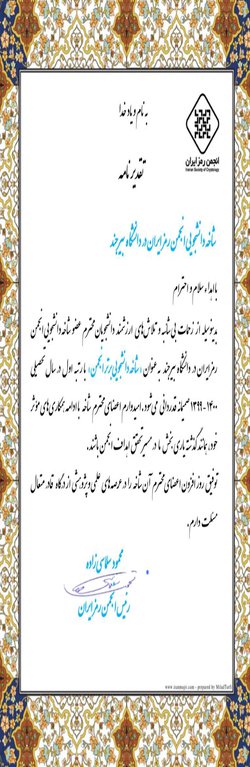 به نام و یاد خدا
انجمن رمز ایران
Iranian Society of Cryptology
تقدیر نامه
شاخه دانشجویی انجمن رمز ایران در دانشگاه بیرجند
با اهداء سلام و احترام
بدینوسیله از زحمات بی شائبه و تلاش‌های ارزشمند دانشجویان محترم عضو شاخه دانشجویی انجمن
رمز ایران در دانشگاه بیرجند به عنوان «شاخه دانشجویی برتر انجمن» با رتبه اول در سال تحصیلی
۱۴۰۰-۱۳۹۹ صمیمانه قدردانی می‌شود. امیدوارم اعضای محترم شاخه با ادامه همکاری‌های مؤثر
خود، همانند گذشته یاری بخش ما در مسیر تحقق اهداف انجمن باشند.
توفیق روز افزون اعضای محترم آن شاخه را در عرصه‌های علمی و پژوهشی از درگاه قادر متعال
مسئلت دارم.
محمود سلماسی زاده
رئیس انجمن رمز ایران